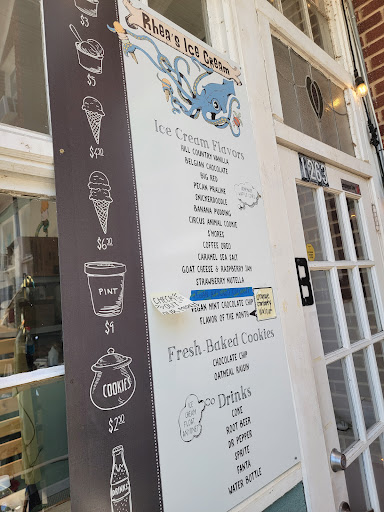 Rhea's Ice Cream
Ice Cream Flavors
HILL COUNTRY VANILLA
BELGIAN CHOCOLATE
BIG RED
PECAN PRALINE
SNICKERDOODLE
BANANA PUDDING
CIRCUS ANIMAL COOKIE
S'MORES
COFFEE OREO
CARAMEL SEA SALT
GOAT CHEESE & RASPBERRY JAM
STRAWBERRY NUTELLA
VEGAN MINT CHOCOLATE CHIP
FLAVOR OF THE MONTH
Fresh-Baked Cookies
CHOCOLATE CHIP
OATMEAL RAISIN
Drinks
ICE
CREAM
FLOAT
ANYONE?
COKE
ROOT BEER
DR PEPPER
SPRITE
FANTA
WATER BOTTLE
$3
$5
PINT
$9
COOKIES
DRINKS
1263